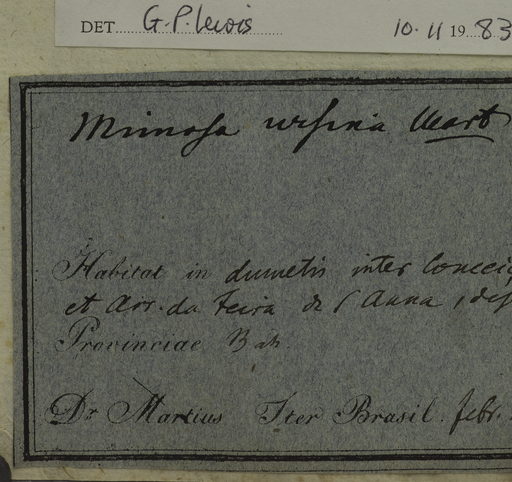 DET. G. P. Lewis 10. 11 19 83
Mimosa ursina Mart
Habitat in dumetis inter Concei
et Arr. da Feira de S Anna, des
Provinciae Bah
Dr Martius Iter Brasil. febr.